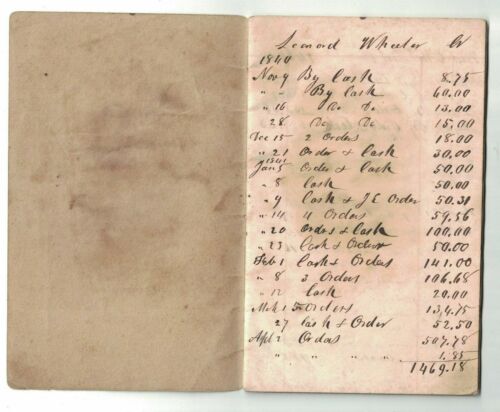 Leonard Wheeler Cr
1840
Nov 9 By Cash 8.75
" " By Cash 60.00
" 16 Do Do 13.00
" 28 Do Do 15.00
Dec 15 2 Orders 18.00
" 21 Order & Cash 30.00
1841
Jan 5 Order & Cash 50.00
" 8 Cash 50.00
" 9 Cash & J E Order 50.31
" 14 4 Orders 59.56
" 20 Orders & Cash 100.00
" 23 Cash & Orders 50.00
Feb 1 Cash & Orders 141.00
" 8 3 Orders 106.68
" 12 Cash 20.00
Mch 1 5 Orders 134.75
27 Cash & Order 52.50
Apl 2 Orders 507.78
" " " " 1.85
1469.18